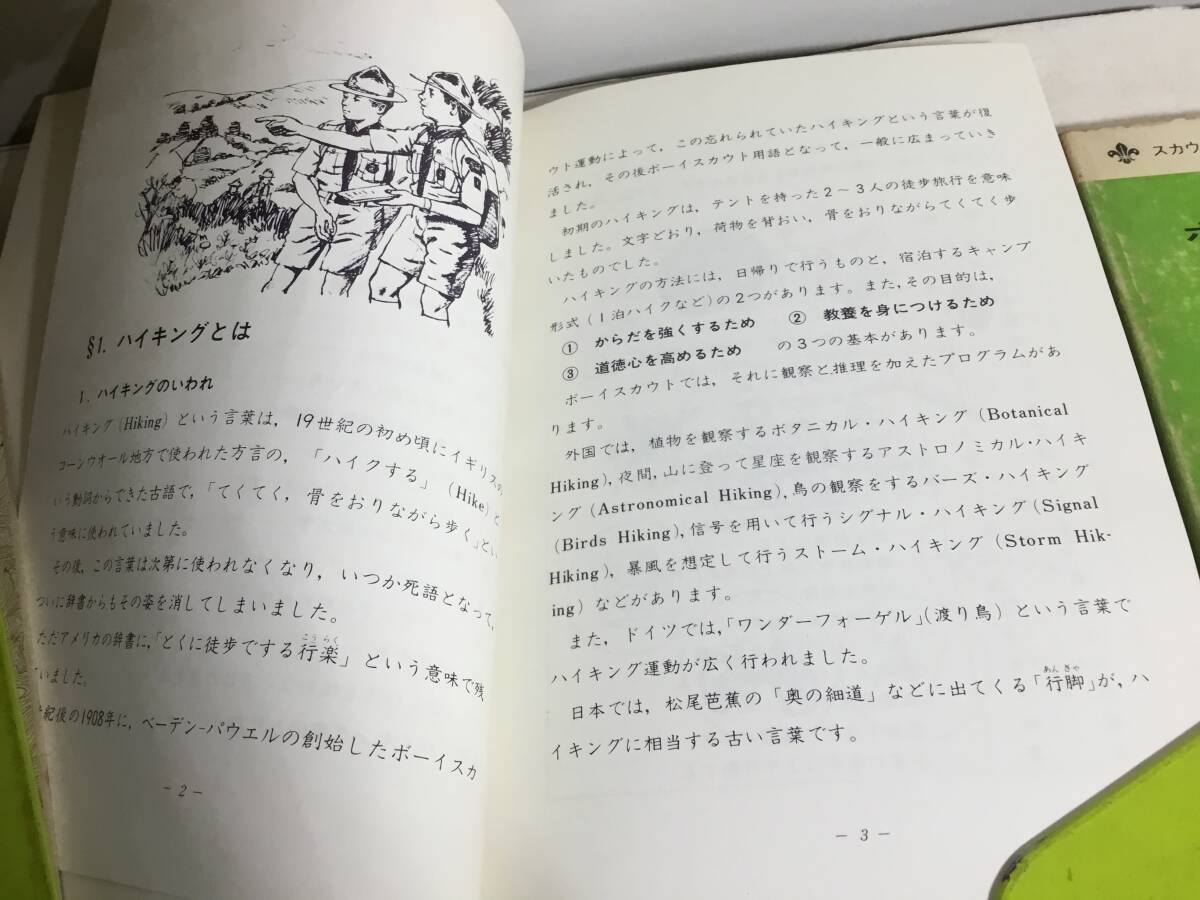 §1. ハイキングとは
1. ハイキングのいわれ
ハイキング (Hiking) という言葉は，19世紀の初め頃にイギリスの
コーンウオール地方で使われた方言の，「ハイクする」（Hike) と
いう動詞からできた古語で，「てくてく，骨をおりながら歩く」とい
う意味に使われていました。
その後，この言葉は次第に使われなくなり，いつか死語となって，
ついに辞書からもその姿を消してしまいました。
ただアメリカの辞書に，「とくに徒歩でする行楽」という意味で残
こうらく
ていました。
紀後の1908年に，ベーデン-パウエルの創始したボーイスカ
－2－
ウト運動によって，この忘れられていたハイキングという言葉が復
活され，その後ボーイスカウト用語となって，一般に広まっていき
ました。
初期のハイキングは，テントを持った2～3人の徒歩旅行を意味
しました。文字どおり，荷物を背おい，骨をおりながらてくてく歩
いたものでした。
ハイキングの方法には，日帰りで行うものと，宿泊するキャンプ
形式（1泊ハイクなど）の2つがあります。また，その目的は，
① からだを強くするため ② 教養を身につけるため
③ 道徳心を高めるため の3つの基本があります。
ボーイスカウトでは，それに観察と推理を加えたプログラムがあ
ります。
外国では，植物を観察するボタニカル・ハイキング（Botanical
Hiking)，夜間，山に登って星座を観察するアストロノミカル・ハイキ
ング (Astronomical Hiking)，鳥の観察をするバーズ・ハイキング
（Birds Hiking)，信号を用いて行うシグナル・ハイキング（Signal
Hiking)，暴風を想定して行うストーム・ハイキング（Storm Hik-
ing）などがあります。
また，ドイツでは，「ワンダーフォーゲル」（渡り鳥）という言葉で
ハイキング運動が広く行われました。
日本では，松尾芭蕉の「奥の細道」などに出てくる「行脚」が，ハ
あんぎゃ
イキングに相当する古い言葉です。
－3－
スカウ